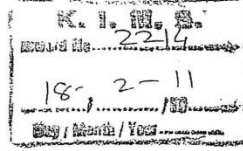 K. I. M. S.
No. 2214
18- 2-11
Day / Month / Year